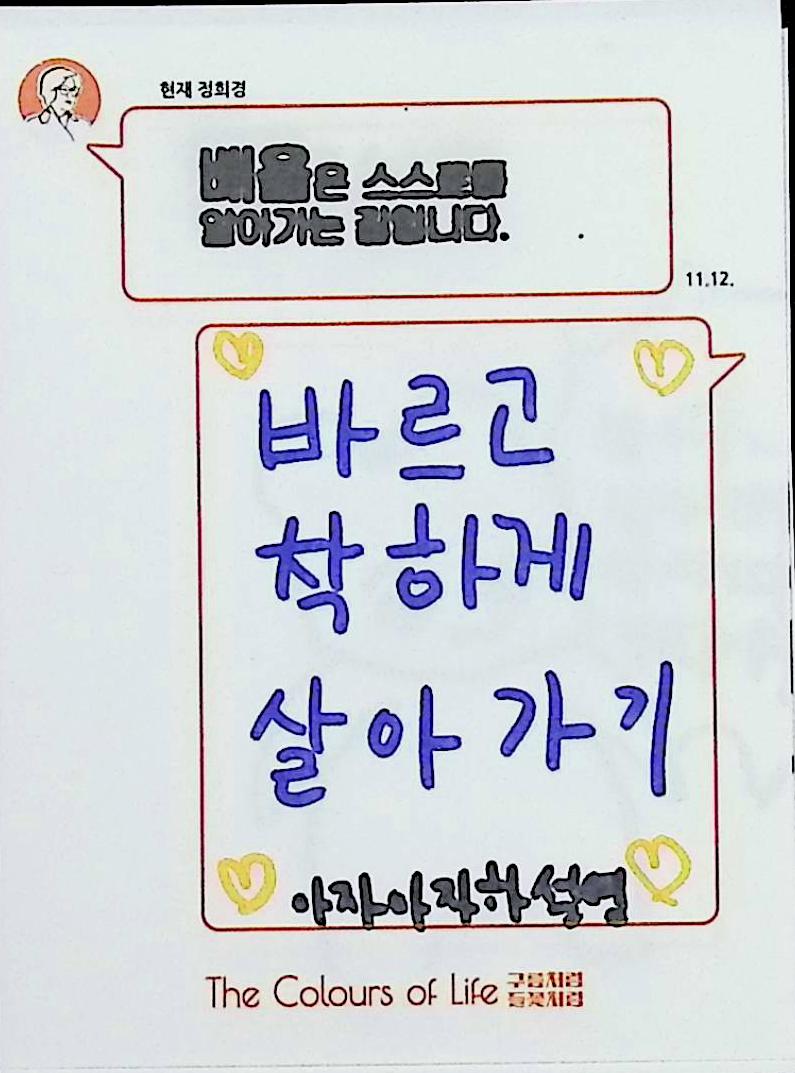 현재 정희경
배움은 스스로를
알아가는 길입니다.
11.12.
바르고
착하게
살아가기
아자아작하
The Colours of Life 구름처럼
들꽃처럼